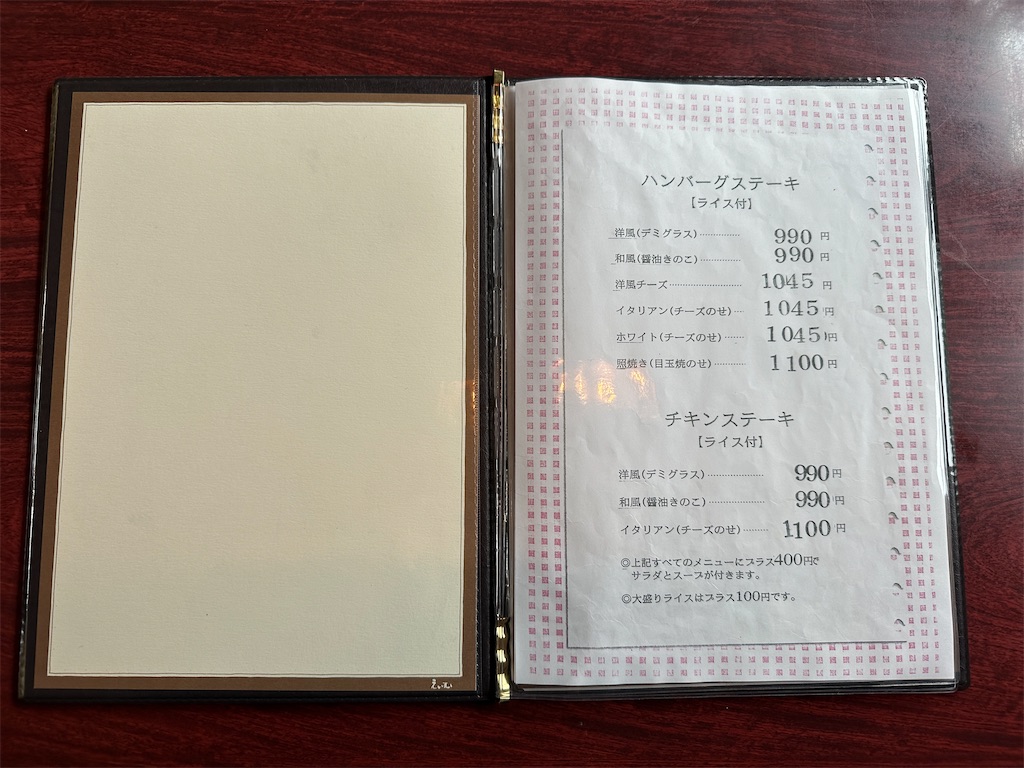 ハンバーグステーキ
【ライス付】
洋風(デミグラス)……………990円
和風(醤油きのこ)……………990円
洋風チーズ……………………1045円
イタリアン(チーズのせ)…1045円
ホワイト(チーズのせ)……1045円
照焼き(目玉焼のせ)………1100円
チキンステーキ
【ライス付】
洋風(デミグラス)……………990円
和風(醤油きのこ)……………990円
イタリアン(チーズのせ)………1100円
◎上記すべてのメニューにプラス400円で
サラダとスープが付きます。
◎大盛りライスはプラス100円です。